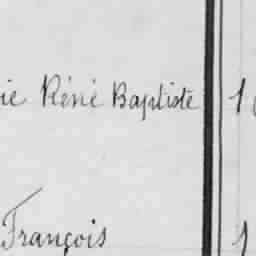 ie René Baptiste 1
François 1